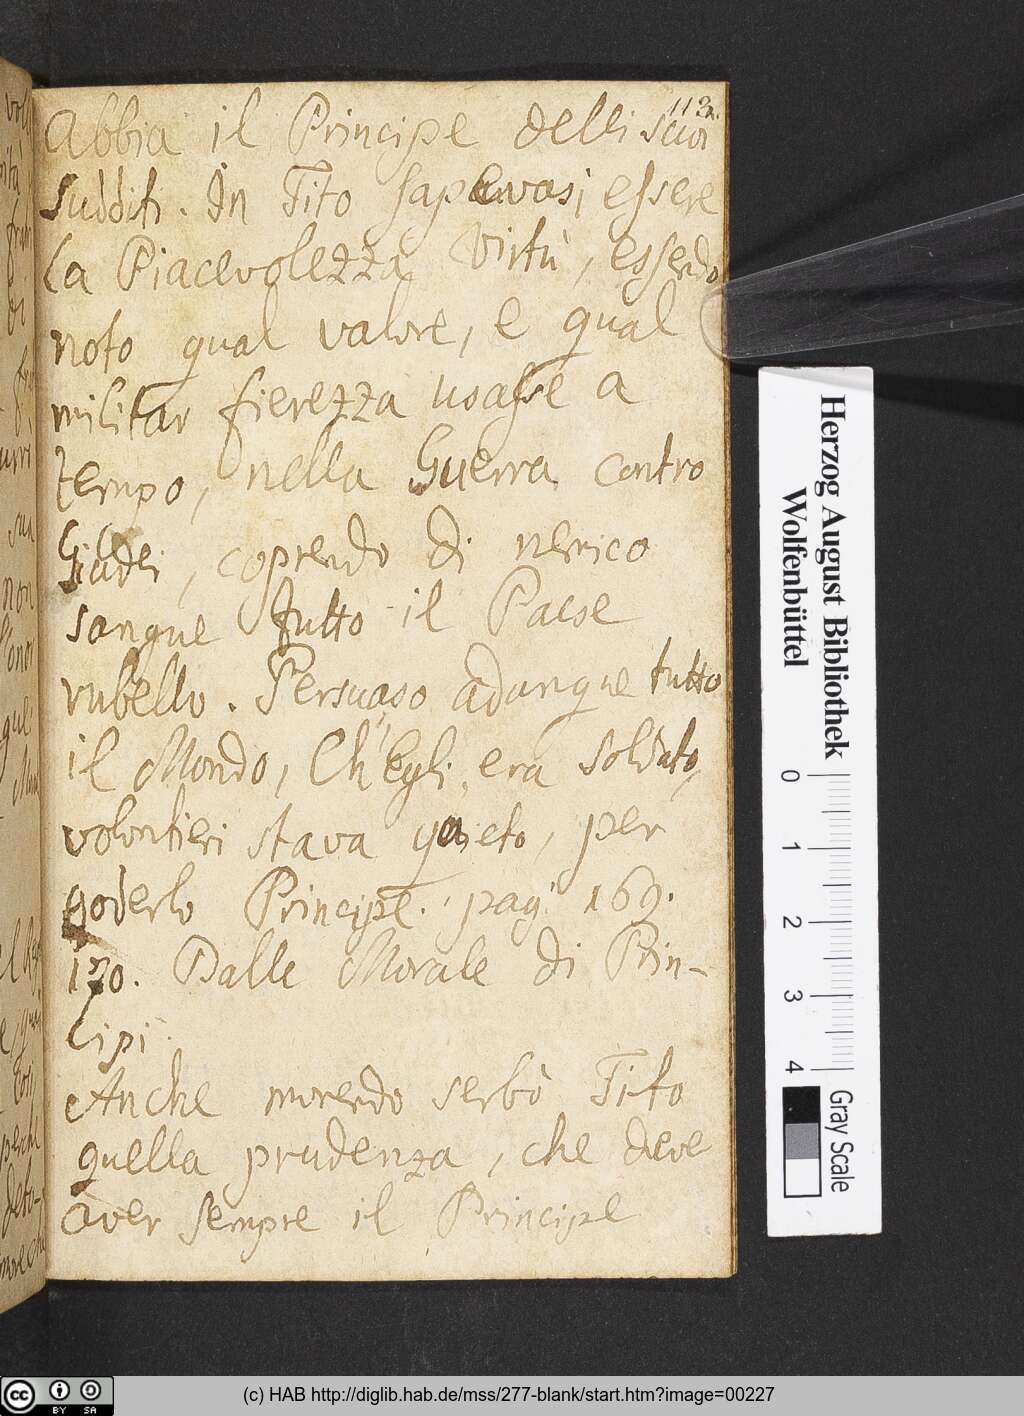 113.
Abbia il Principe delli suoi
Sudditi. In Tito sapevasi essere
la Piacevolezza Virtù, essendo
noto qual valore, e qual
militar fierezza usasse a
tempo, nella Guerra contro
Giudei, coprendo di nemico
sangue tutto il Paese
rubello. Persuaso adunque tutto
il Mondo, Ch'Egli era soldato,
volontieri stava quieto, per
goderlo Principe. pag. 169.
170. Dalle Morale di Prin-
cipi.
Anche morendo serbò Tito
quella prudenza, che deve
aver sempre il Principe
Herzog August Bibliothek
Wolfenbüttel
0 1 2 3 4
Gray Scale
(c) HAB http://diglib.hab.de/mss/277-blank/start.htm?image=00227
cc BY SA